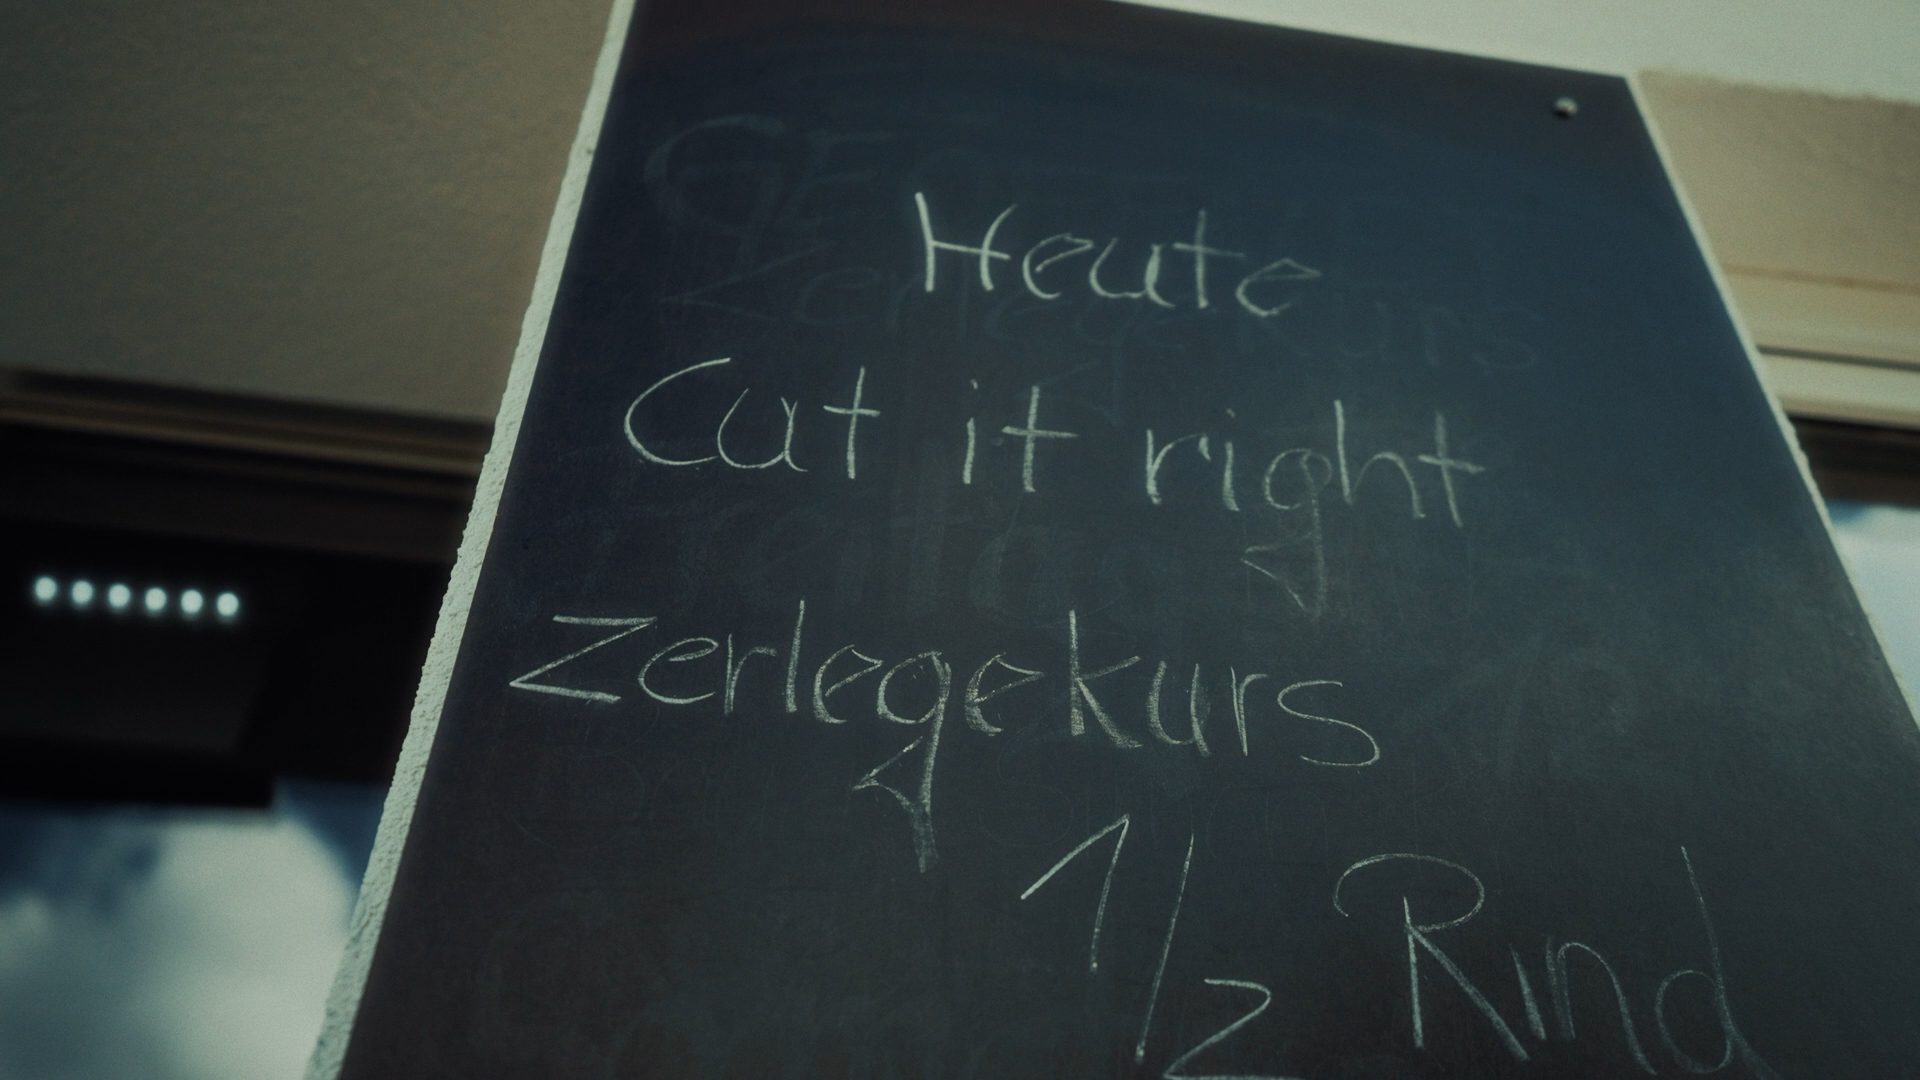 Heute
Cut it right
Zerlegekurs
1/2 Rind